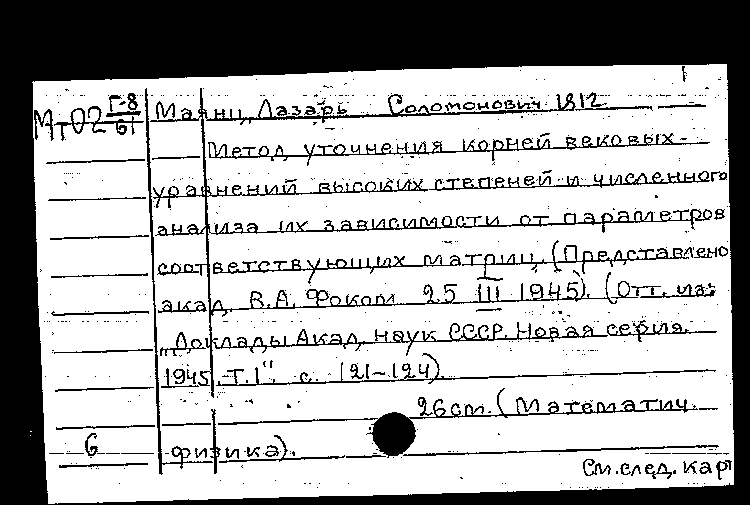 МтО2 Г-8/61 Маянц, Лазарь Соломонович 1812
Метод уточнения корней вековых
уравнений высоких степеней и численного
анализа их зависимости от параметров
соответствующих матриц. (Представлено
акад. В.А. Фоком 25 III 1945). (Отт. из:
„Доклады Акад. наук СССР. Новая серия.
1945. Т.1". с. 121-124).
26см. (Математич.
6 физика).
См. след. кар